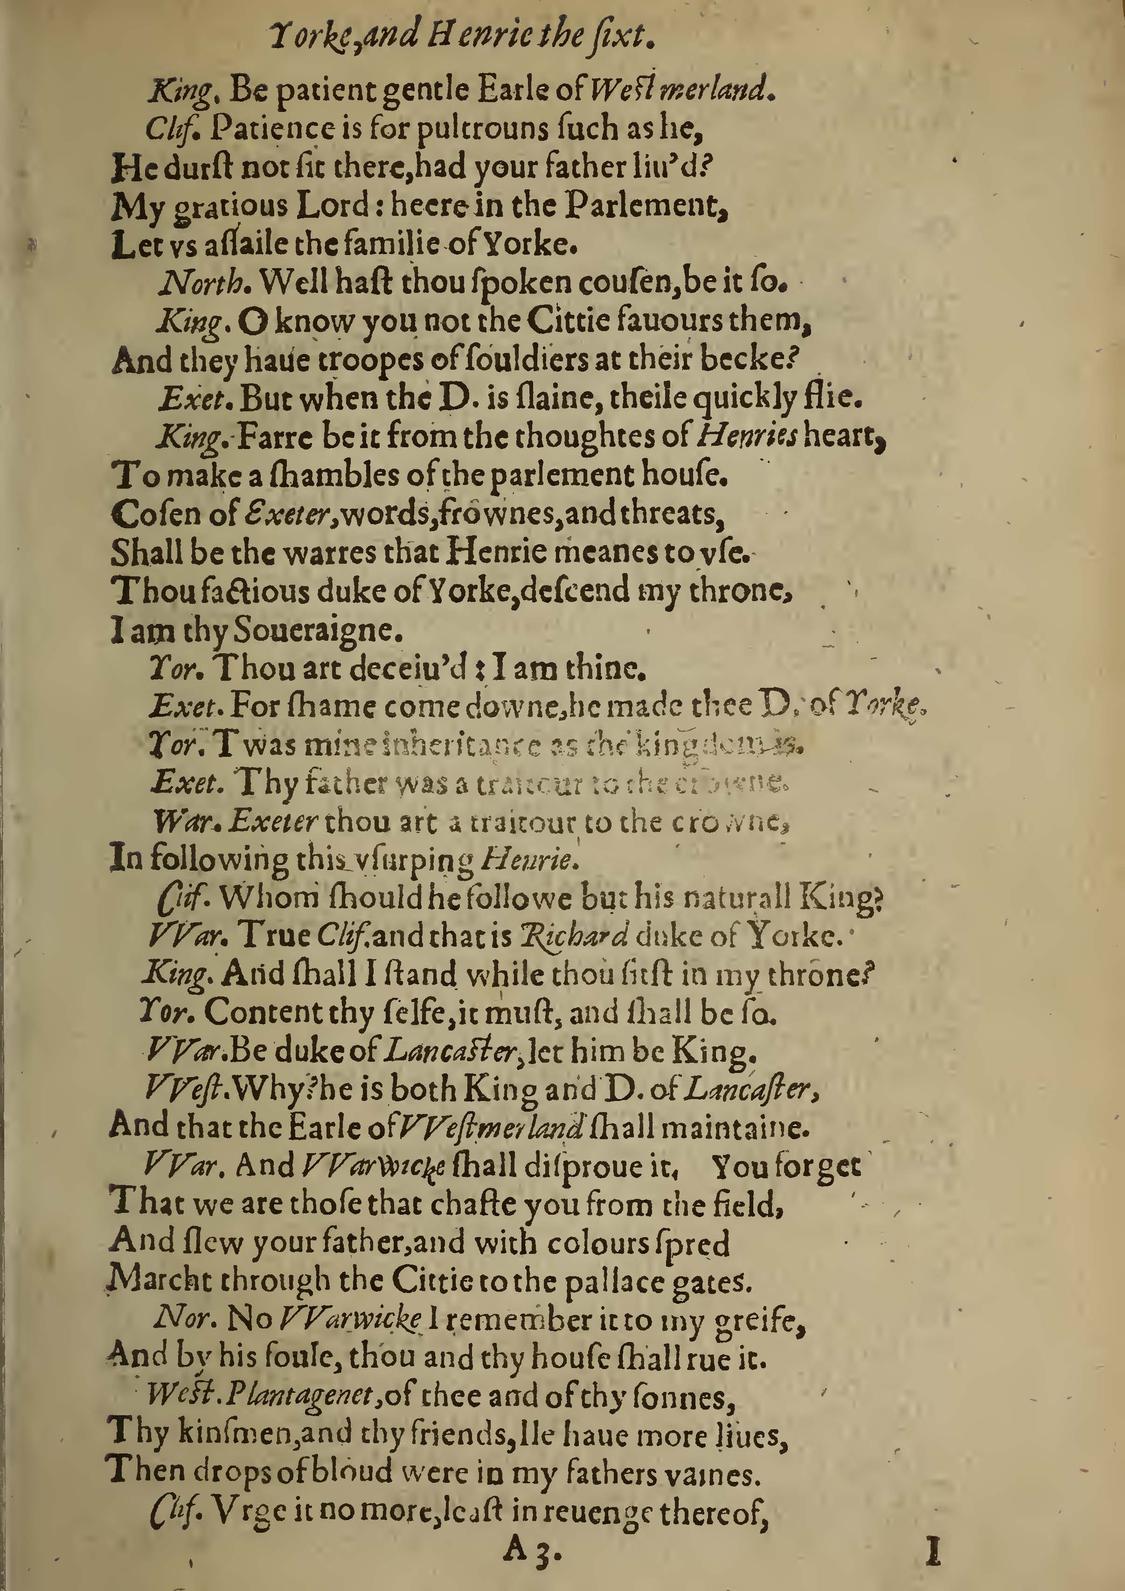 Yorke, and Henrie the ſixt.
King. Be patient gentle Earle of Weſtmerland.
Clif. Patience is for pultrouns ſuch as he,
He durſt not ſit there, had your father liu'd?
My gratious Lord: heere in the Parlement,
Let vs aſſaile the familie of Yorke.
North. Well haſt thou ſpoken couſen, be it ſo.
King. O know you not the Cittie fauours them,
And they haue troopes of ſouldiers at their becke?
Exet. But when the D. is ſlaine, theile quickly flie.
King. Farre be it from the thoughtes of Henries heart,
To make a ſhambles of the parlement houſe.
Coſen of Exeter, words, frownes, and threats,
Shall be the warres that Henrie meanes to vſe.
Thou factious duke of Yorke, deſcend my throne,
I am thy Soueraigne.
Yor. Thou art deceiu'd: I am thine.
Exet. For ſhame come downe, he made thee D. of Yorke.
Yor. Twas mine inheritance as the kingdom is.
Exet. Thy father was a traitour to the crowne.
War. Exeter thou art a traitour to the crowne,
In following this vſurping Henrie.
Clif. Whom ſhould he followe but his naturall King?
VVar. True Clif. and that is Richard duke of Yorke.
King. And ſhall I ſtand while thou ſitſt in my throne?
Yor. Content thy ſelfe, it muſt, and ſhall be ſo.
VVar. Be duke of Lancaſter, let him be King.
VVeſt. Why? he is both King and D. of Lancaſter,
And that the Earle of VVeſtmerland ſhall maintaine.
VVar. And VVarwicke ſhall diſproue it. You forget
That we are thoſe that chaſte you from the field,
And ſlew your father, and with colours ſpred
Marcht through the Cittie to the pallace gates.
Nor. No VVarwicke I remember it to my greife,
And by his ſoule, thou and thy houſe ſhall rue it.
Weſt. Plantagenet, of thee and of thy ſonnes,
Thy kinſmen, and thy friends, Ile haue more liues,
Then drops of bloud were in my fathers vaines.
Clif. Vrge it no more, leaſt in reuenge thereof,
A 3. I